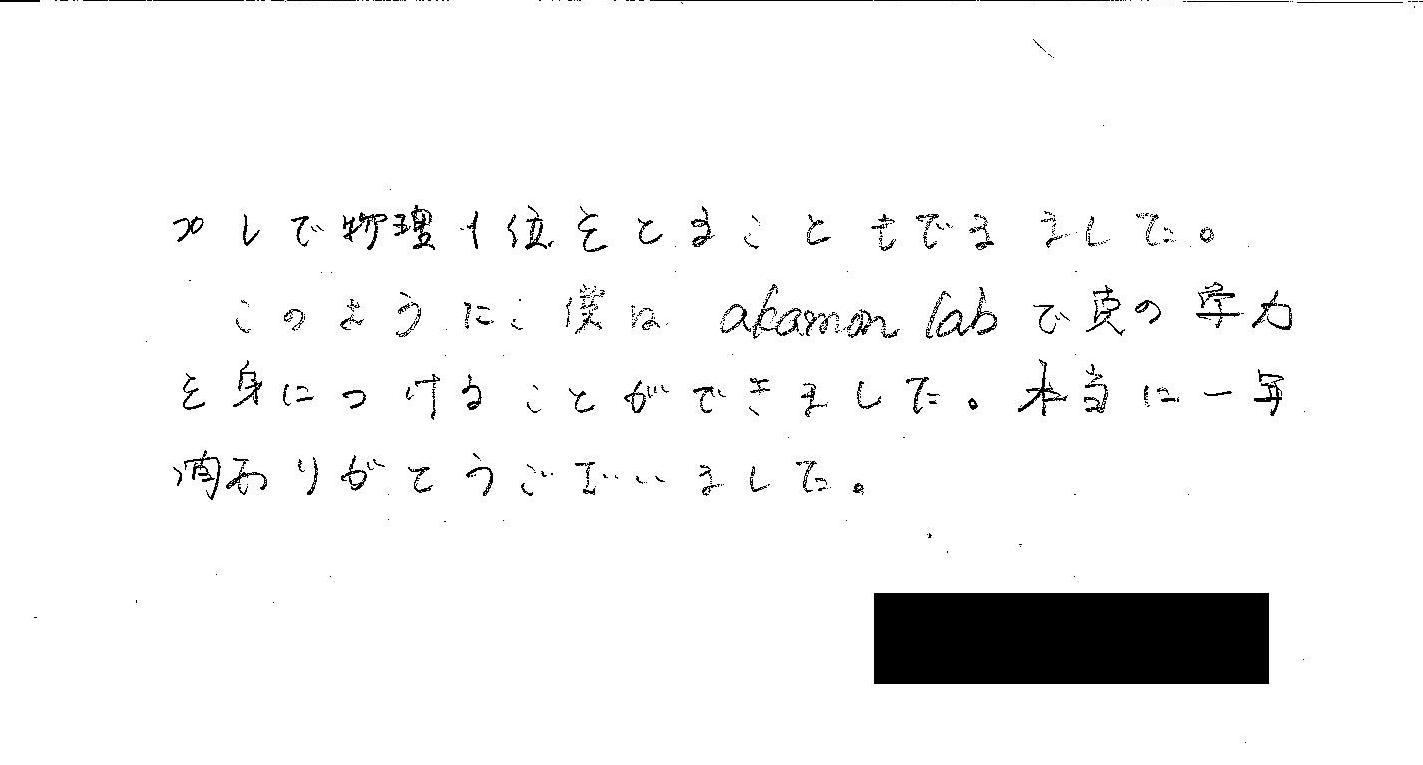 プレで物理1位をとることもできました。
このように、僕は akamon lab で真の学力
を身につけることができました。本当に一年
間ありがとうございました。